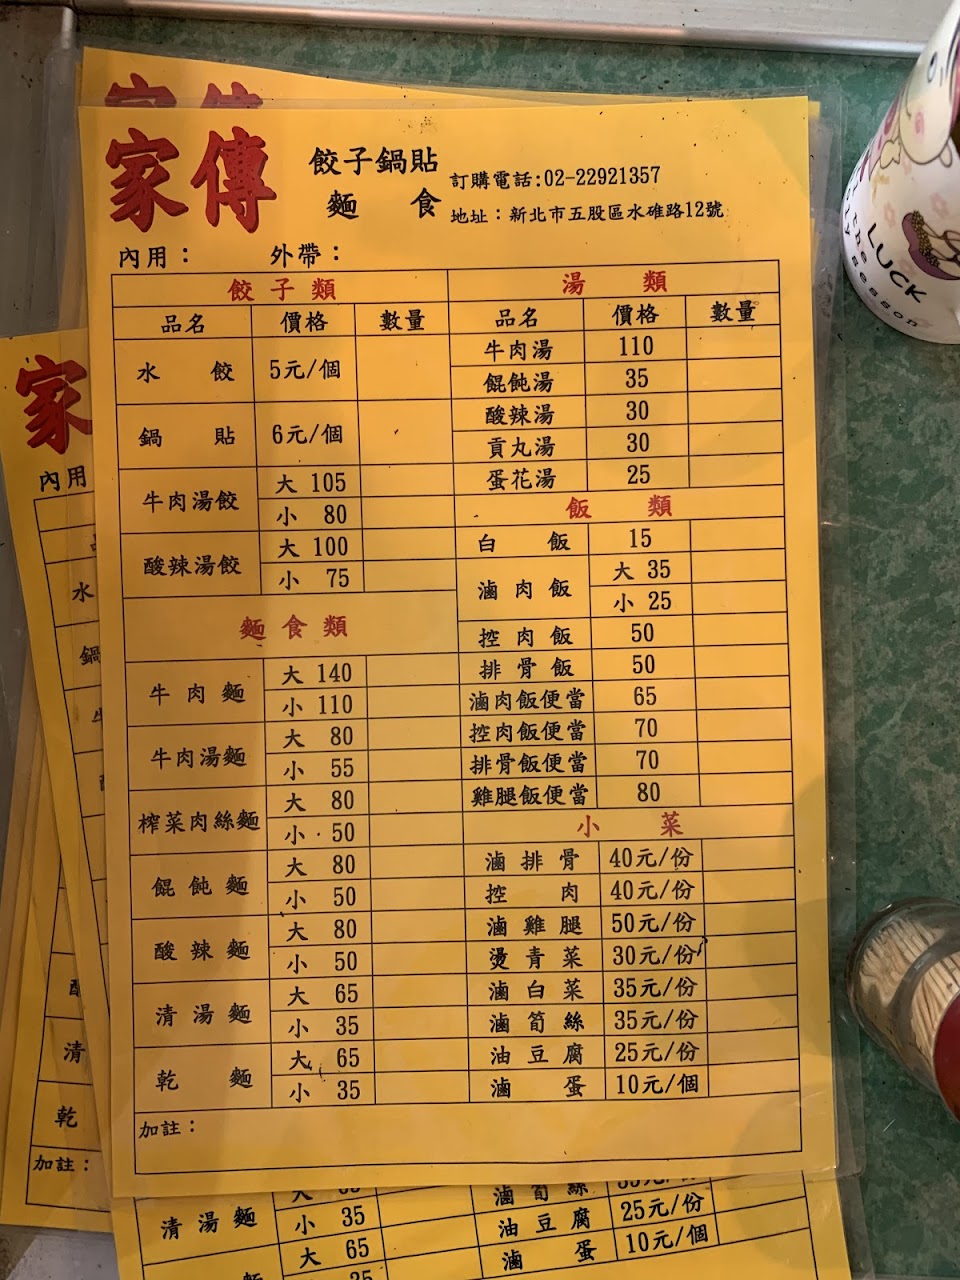 家傳
餃子鍋貼
麵 食
訂購電話:02-22921357
地址：新北市五股區水碓路12號
內用： 外帶：
餃子類
品名 價格 數量
水 餃 5元/個
鍋 貼 6元/個
牛肉湯餃 大 105
小 80
酸辣湯餃 大 100
小 75
麵食類
牛肉麵 大 140
小 110
牛肉湯麵 大 80
小 55
榨菜肉絲麵 大 80
小 50
餛飩麵 大 80
小 50
酸辣麵 大 80
小 50
清湯麵 大 65
小 35
乾 麵 大 65
小 35
湯 類
品名 價格 數量
牛肉湯 110
餛飩湯 35
酸辣湯 30
貢丸湯 30
蛋花湯 25
飯 類
白 飯 15
滷肉飯 大 35
小 25
控肉飯 50
排骨飯 50
滷肉飯便當 65
控肉飯便當 70
排骨飯便當 70
雞腿飯便當 80
小 菜
滷排骨 40元/份
控 肉 40元/份
滷雞腿 50元/份
燙青菜 30元/份
滷白菜 35元/份
滷筍絲 35元/份
油豆腐 25元/份
滷 蛋 10元/個
加註：
家
內用
水
鍋
清
乾
加註：
清湯麵
小 35
大 65
滷筍絲
油豆腐 25元/份
滷 蛋 10元/個
LUCK